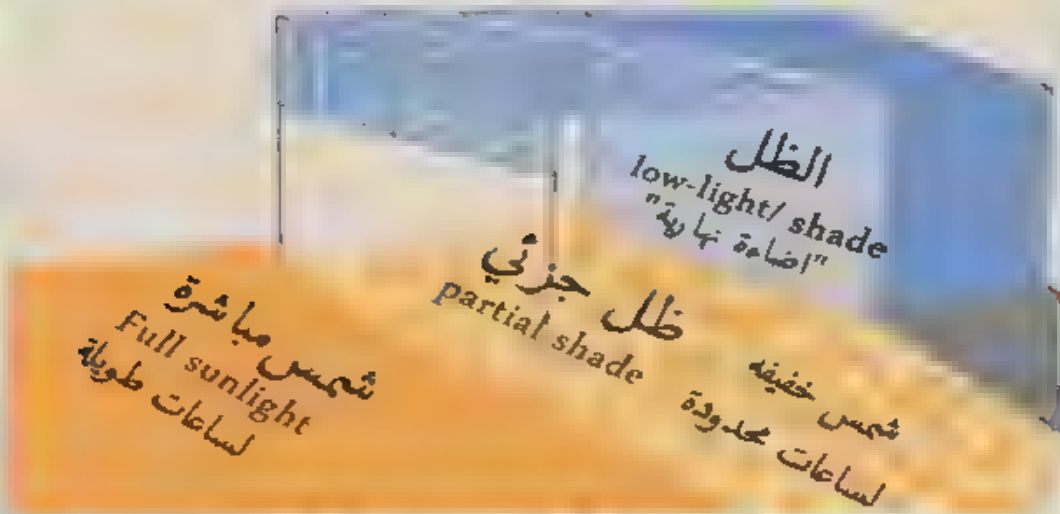 الظل
low-light/ shade
"اضاءة نهارية"
ظل جزئي
partial shade
شمس خفيفه
لساعات محدودة
شمس مباشرة
Full sunlight
لساعات طويلة